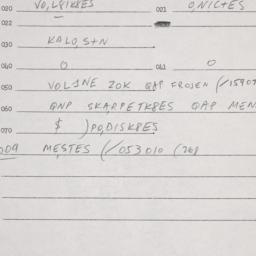 020 VO,L8IKBES 021 O,NICTES
030 KALO,S+N
040 O 041 O
050 VOL1NE 20K QAP FROJEN (/15907
060 QNP SKARPETKBES QAP MEN
070 $ )PO,DISKBES
009 MESTES (/053010 (268